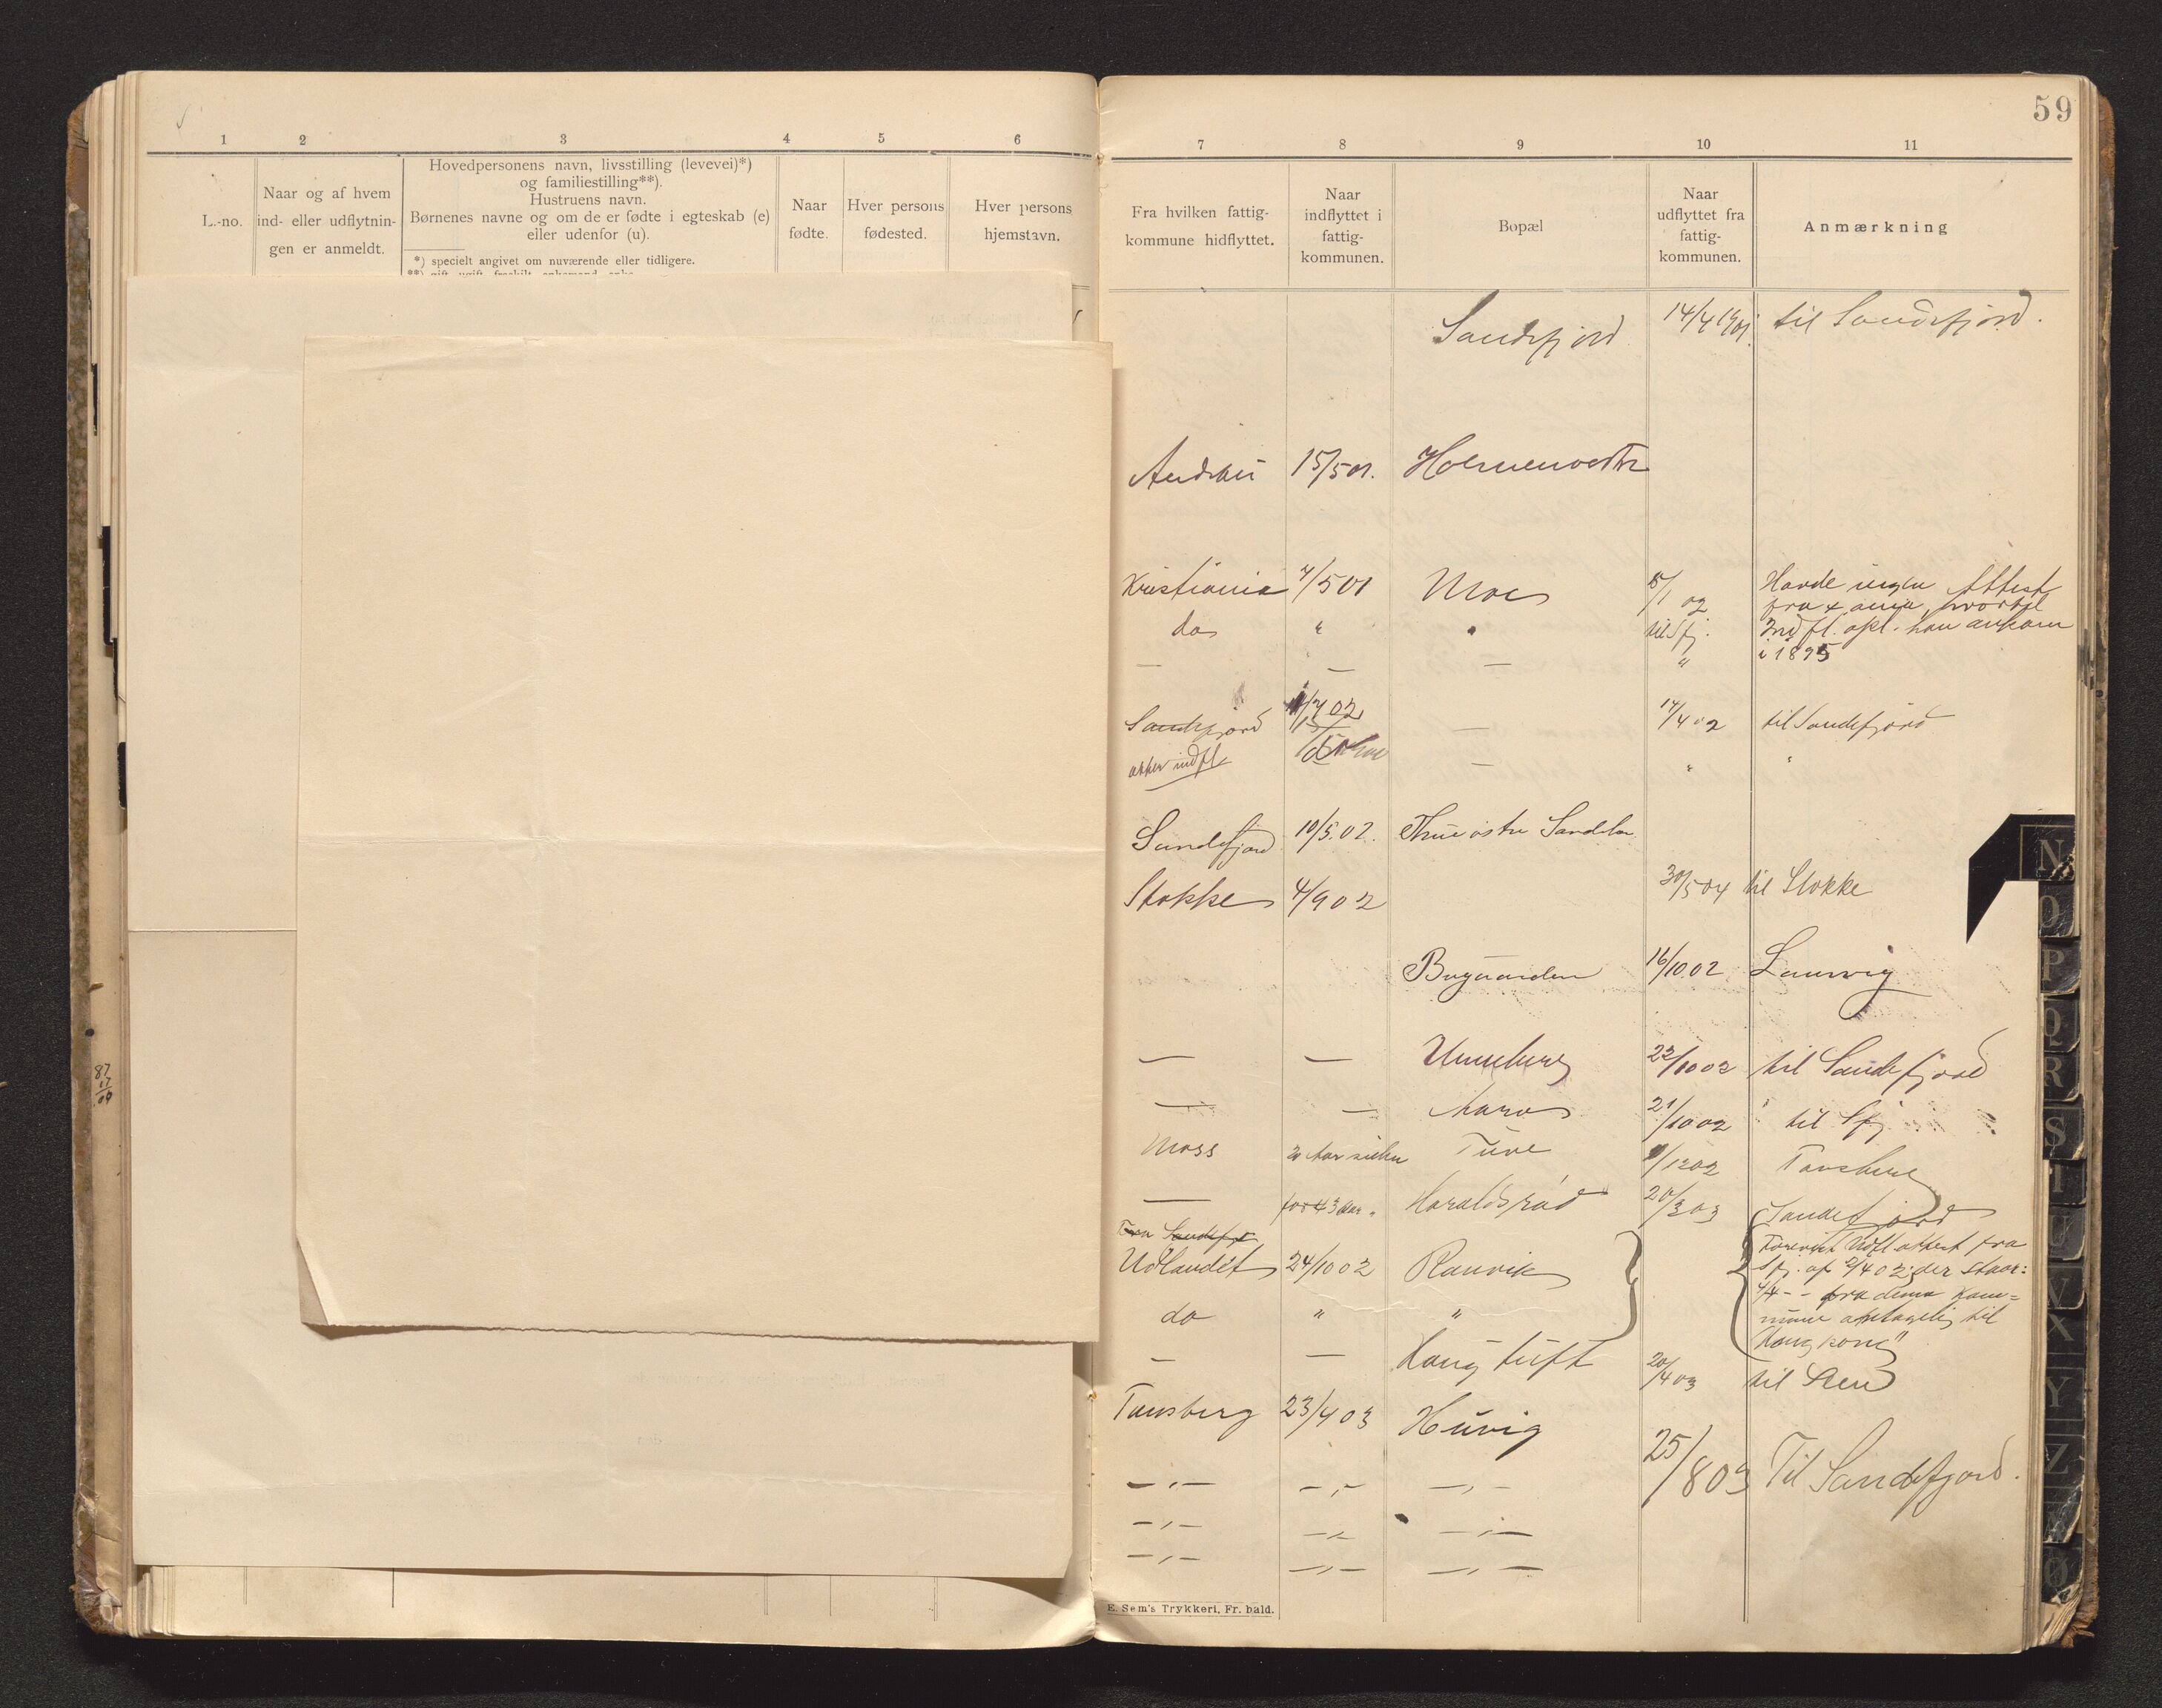 59
1 2 3 4 5 6
L.-no.
Naar og af hvem
ind- eller udflytnin-
gen er anmeldt.
Hovedpersonens navn, livsstilling (levevei)*)
og familiestilling**).
Hustruens navn.
Børnenes navne og om de er fødte i egteskab (e)
eller udenfor (u).
*) specielt angivet om nuværende eller tidligere.
Naar
fødte.
Hver persons
fødested.
Hver persons
hjemstavn.
7 8 9 10 11
Fra hvilken fattig-
kommune hidflyttet.
Naar
indflyttet i
fattig-
kommunen.
Bopæl
Naar
udflyttet fra
fattig-
kommunen.
Anmærkning
Sandefjord 14/4 1901. til Sandefjord.
Andebu 15/5 01.
Kristiania 7/5 01 Moe 8/1 02 Havde ingen Attest
fra X ania, hvortil
do " " til Sfj. Indfl. opl. han ankom
— — — " i 1895
Sandefjord 02 — 14/4 02 til Sandefjord
— " "
Sandefjord 10/5.02. Thue østre Sandeher
Stokke 4/9 02 30/5 04 til Stokke
Bugaarden 16/10.02 Laurvig
— — Unneberg 22/10 02 til Sandefjord
— — 21/10 02 til Sfj
Moss 20 Aar siden Tuve 1/12 02 Tønsberg
— for 43 Aar. Haraldsrød 20/3 03 Sandefjord
Fra Sandefj
Udlandet 24/10 02 Ranvik
Forevist Udfl. attest fra
Sfj. af 2/4 02; der staar:
4/4 - - fra denne Kom=
mune antagelig til
Hong kong"
do " "
— — Haugtuft 20/4 03 til Sem
Tønsberg 23/4 03 Huvig
25/8 03 Til Sandefjord.
—"— —"— —"—
—"— —"— —"—
—"— —"— —"—
E. Sem's Trykkeri, Fr. hald.
N
O
P
Q
R
S
T
U
V
X
Y
Z
Æ
Ø
87
17
04